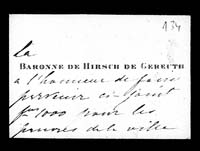 134
la
BARONNE DE HIRSCH DE GEREUTH
a l'honneur de faire
parvenir ci-joint
frs 1000 pour les
pauvres de la ville